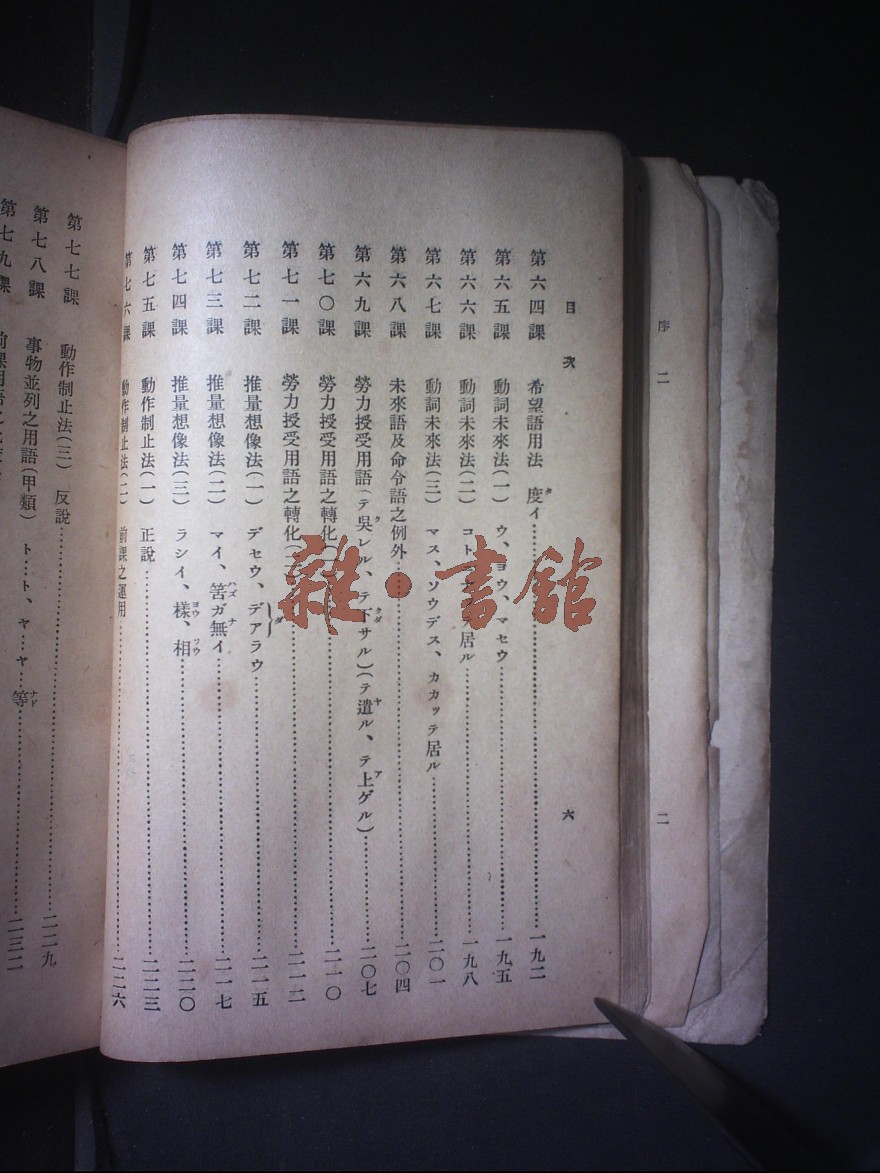 序 二
二
目次
六
第六四課 希望語用法 度イ……一九二
タ
第六五課 動詞未來法(一) ウ、ヨウ、マセウ……一九五
第六六課 動詞未來法(二) コト 居ル……一九八
第六七課 動詞未來法(三) マス、ソウデス、カカッテ居ル……二〇一
第六八課 未來語及命令語之例外……二〇四
第六九課 勞力授受用語(テ吳レル、テ下サル)(テ遣ル、テ上ゲル)……二〇七
ク クダ ヤ ア
第七〇課 勞力授受用語之轉化……二一〇
第七一課 勞力授受用語之轉化……二一二
第七二課 推量想像法(一) デセウ、デアラウ……二一五
ダ
第七三課 推量想像法(二) マイ、筈ガ無イ……二一七
ハズ ナ
第七四課 推量想像法(三) ラシイ、樣、相……二二〇
ヨウ ソウ
第七五課 動作制止法(一) 正說……二二三
第七六課 動作制止法(二) 前課之運用……二二六
第七七課 動作制止法(三) 反說……二二九
第七八課 事物並列之用語(甲類) ト…ト、ヤ…ヤ…等……二三二
ナド
第七九課 前課用語之
雜·書館